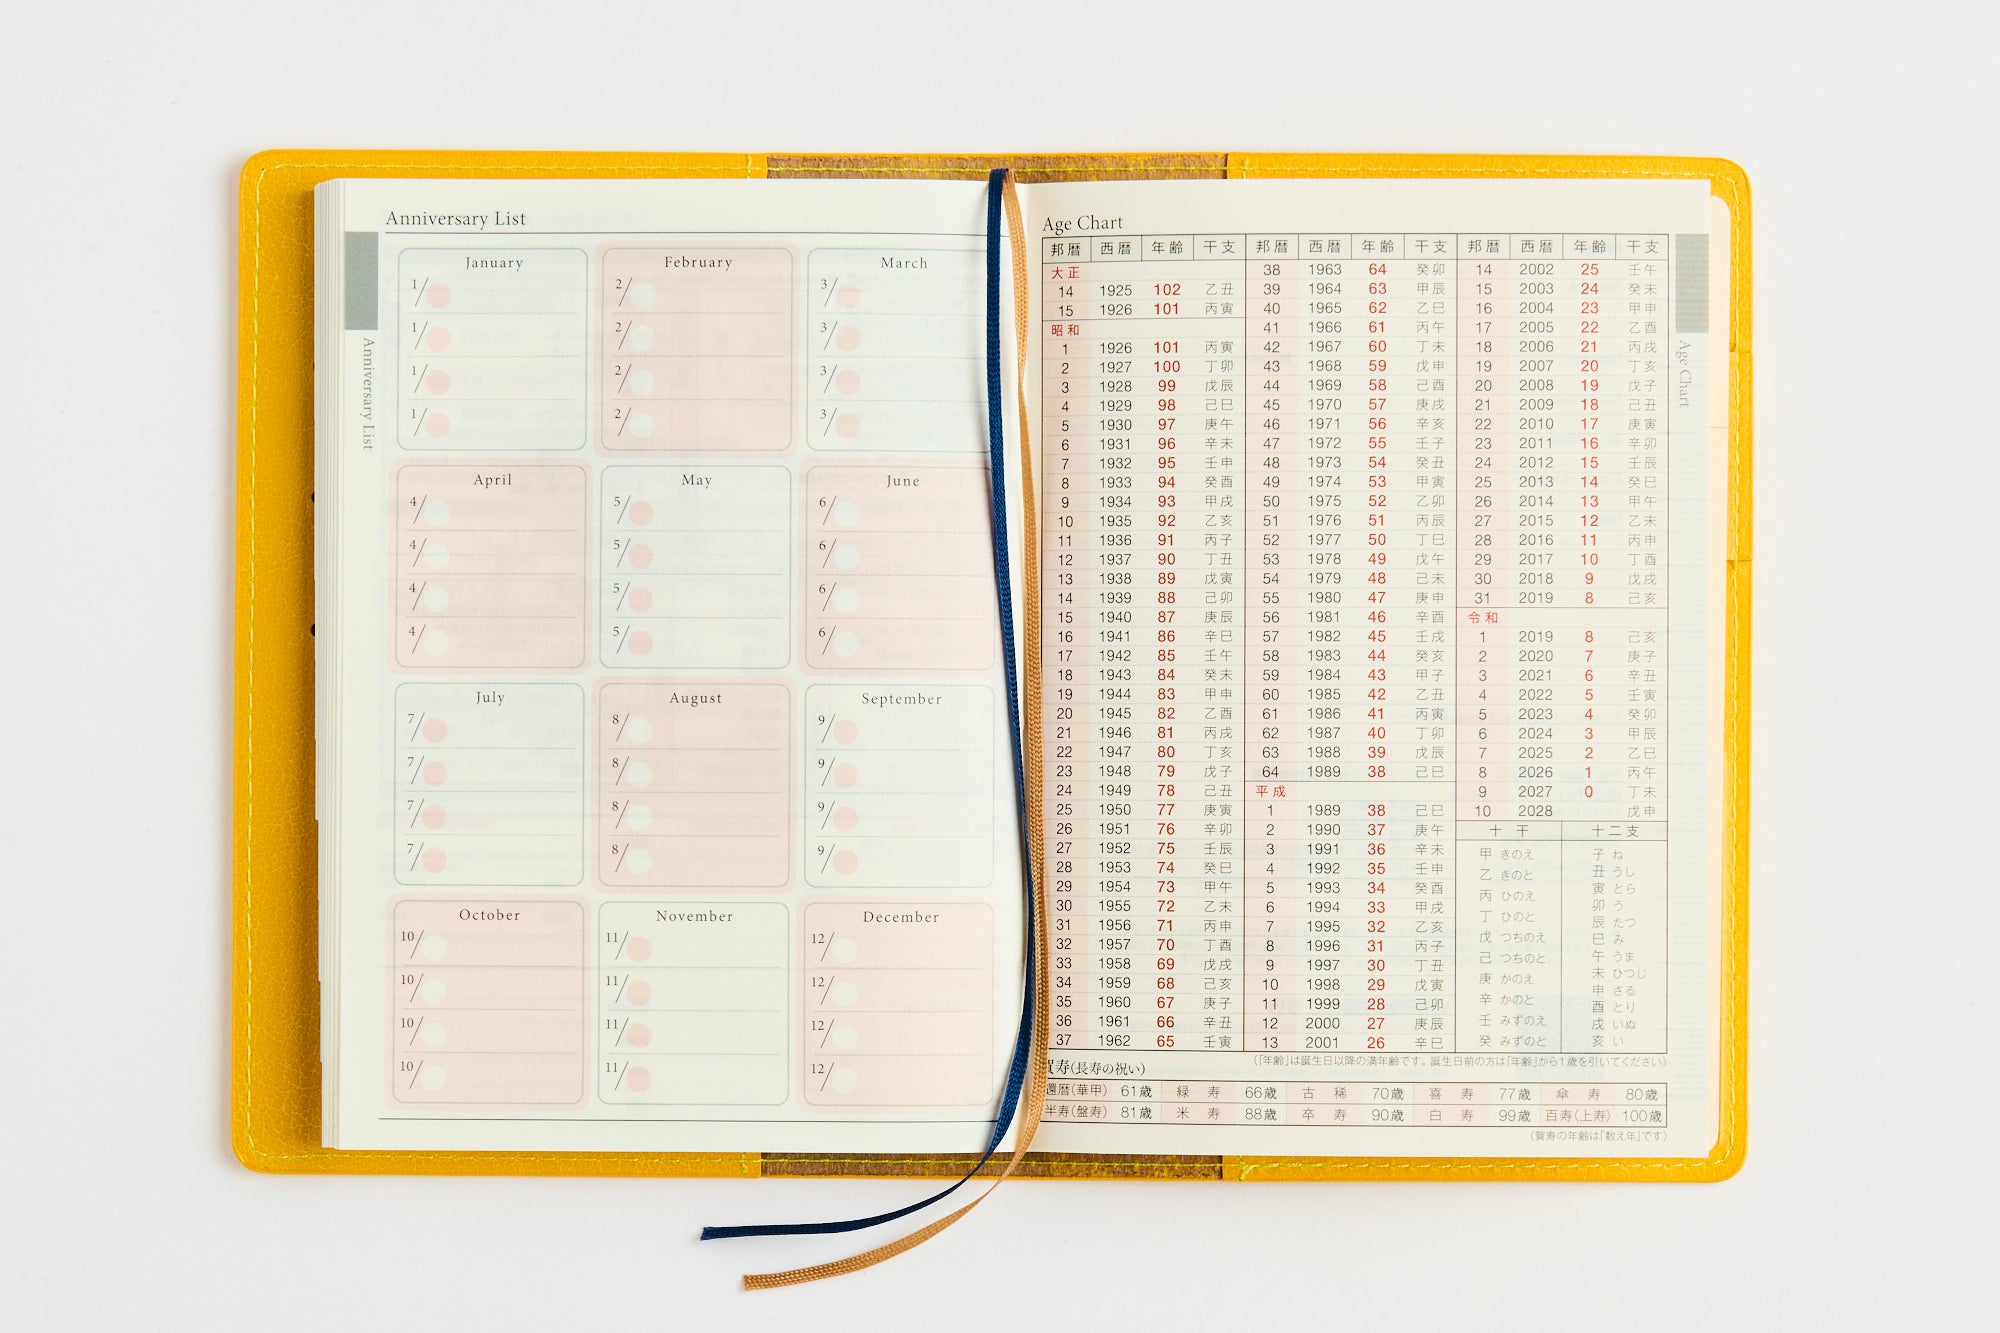 Anniversary List
January February March
1/ 2/ 3/
1/ 2/ 3/
1/ 2/ 3/
1/ 2/ 3/
April May June
4/ 5/ 6/
4/ 5/ 6/
4/ 5/ 6/
4/ 5/ 6/
July August September
7/ 8/ 9/
7/ 8/ 9/
7/ 8/ 9/
7/ 8/ 9/
October November December
10/ 11/ 12/
10/ 11/ 12/
10/ 11/ 12/
10/ 11/ 12/
Anniversary List
Age Chart
邦暦 西暦 年齢 干支
大正
14 1925 102 乙丑
15 1926 101 丙寅
昭和
1 1926 101 丙寅
2 1927 100 丁卯
3 1928 99 戊辰
4 1929 98 己巳
5 1930 97 庚午
6 1931 96 辛未
7 1932 95 壬申
8 1933 94 癸酉
9 1934 93 甲戌
10 1935 92 乙亥
11 1936 91 丙子
12 1937 90 丁丑
13 1938 89 戊寅
14 1939 88 己卯
15 1940 87 庚辰
16 1941 86 辛巳
17 1942 85 壬午
18 1943 84 癸未
19 1944 83 甲申
20 1945 82 乙酉
21 1946 81 丙戌
22 1947 80 丁亥
23 1948 79 戊子
24 1949 78 己丑
25 1950 77 庚寅
26 1951 76 辛卯
27 1952 75 壬辰
28 1953 74 癸巳
29 1954 73 甲午
30 1955 72 乙未
31 1956 71 丙申
32 1957 70 丁酉
33 1958 69 戊戌
34 1959 68 己亥
35 1960 67 庚子
36 1961 66 辛丑
37 1962 65 壬寅
邦暦 西暦 年齢 干支
38 1963 64 癸卯
39 1964 63 甲辰
40 1965 62 乙巳
41 1966 61 丙午
42 1967 60 丁未
43 1968 59 戊申
44 1969 58 己酉
45 1970 57 庚戌
46 1971 56 辛亥
47 1972 55 壬子
48 1973 54 癸丑
49 1974 53 甲寅
50 1975 52 乙卯
51 1976 51 丙辰
52 1977 50 丁巳
53 1978 49 戊午
54 1979 48 己未
55 1980 47 庚申
56 1981 46 辛酉
57 1982 45 壬戌
58 1983 44 癸亥
59 1984 43 甲子
60 1985 42 乙丑
61 1986 41 丙寅
62 1987 40 丁卯
63 1988 39 戊辰
64 1989 38 己巳
平成
1 1989 38 己巳
2 1990 37 庚午
3 1991 36 辛未
4 1992 35 壬申
5 1993 34 癸酉
6 1994 33 甲戌
7 1995 32 乙亥
8 1996 31 丙子
9 1997 30 丁丑
10 1998 29 戊寅
11 1999 28 己卯
12 2000 27 庚辰
13 2001 26 辛巳
邦暦 西暦 年齢 干支
14 2002 25 壬午
15 2003 24 癸未
16 2004 23 甲申
17 2005 22 乙酉
18 2006 21 丙戌
19 2007 20 丁亥
20 2008 19 戊子
21 2009 18 己丑
22 2010 17 庚寅
23 2011 16 辛卯
24 2012 15 壬辰
25 2013 14 癸巳
26 2014 13 甲午
27 2015 12 乙未
28 2016 11 丙申
29 2017 10 丁酉
30 2018 9 戊戌
31 2019 8 己亥
令和
1 2019 8 己亥
2 2020 7 庚子
3 2021 6 辛丑
4 2022 5 壬寅
5 2023 4 癸卯
6 2024 3 甲辰
7 2025 2 乙巳
8 2026 1 丙午
9 2027 0 丁未
10 2028 戊申
十干
甲 きのえ
乙 きのと
丙 ひのえ
丁 ひのと
戊 つちのえ
己 つちのと
庚 かのえ
辛 かのと
壬 みずのえ
癸 みずのと
十二支
子 ね
丑 うし
寅 とら
卯 う
辰 たつ
巳 み
午 うま
未 ひつじ
申 さる
酉 とり
戌 いぬ
亥 い
(「年齢」は誕生日以降の満年齢です。誕生日前の方は「年齢」から1歳を引いてください)
賀寿(長寿の祝い)
還暦(華甲) 61歳 緑寿 66歳 古稀 70歳 喜寿 77歳 傘寿 80歳
半寿(盤寿) 81歳 米寿 88歳 卒寿 90歳 白寿 99歳 百寿(上寿) 100歳
(賀寿の年齢は「数え年」です)
Age Chart